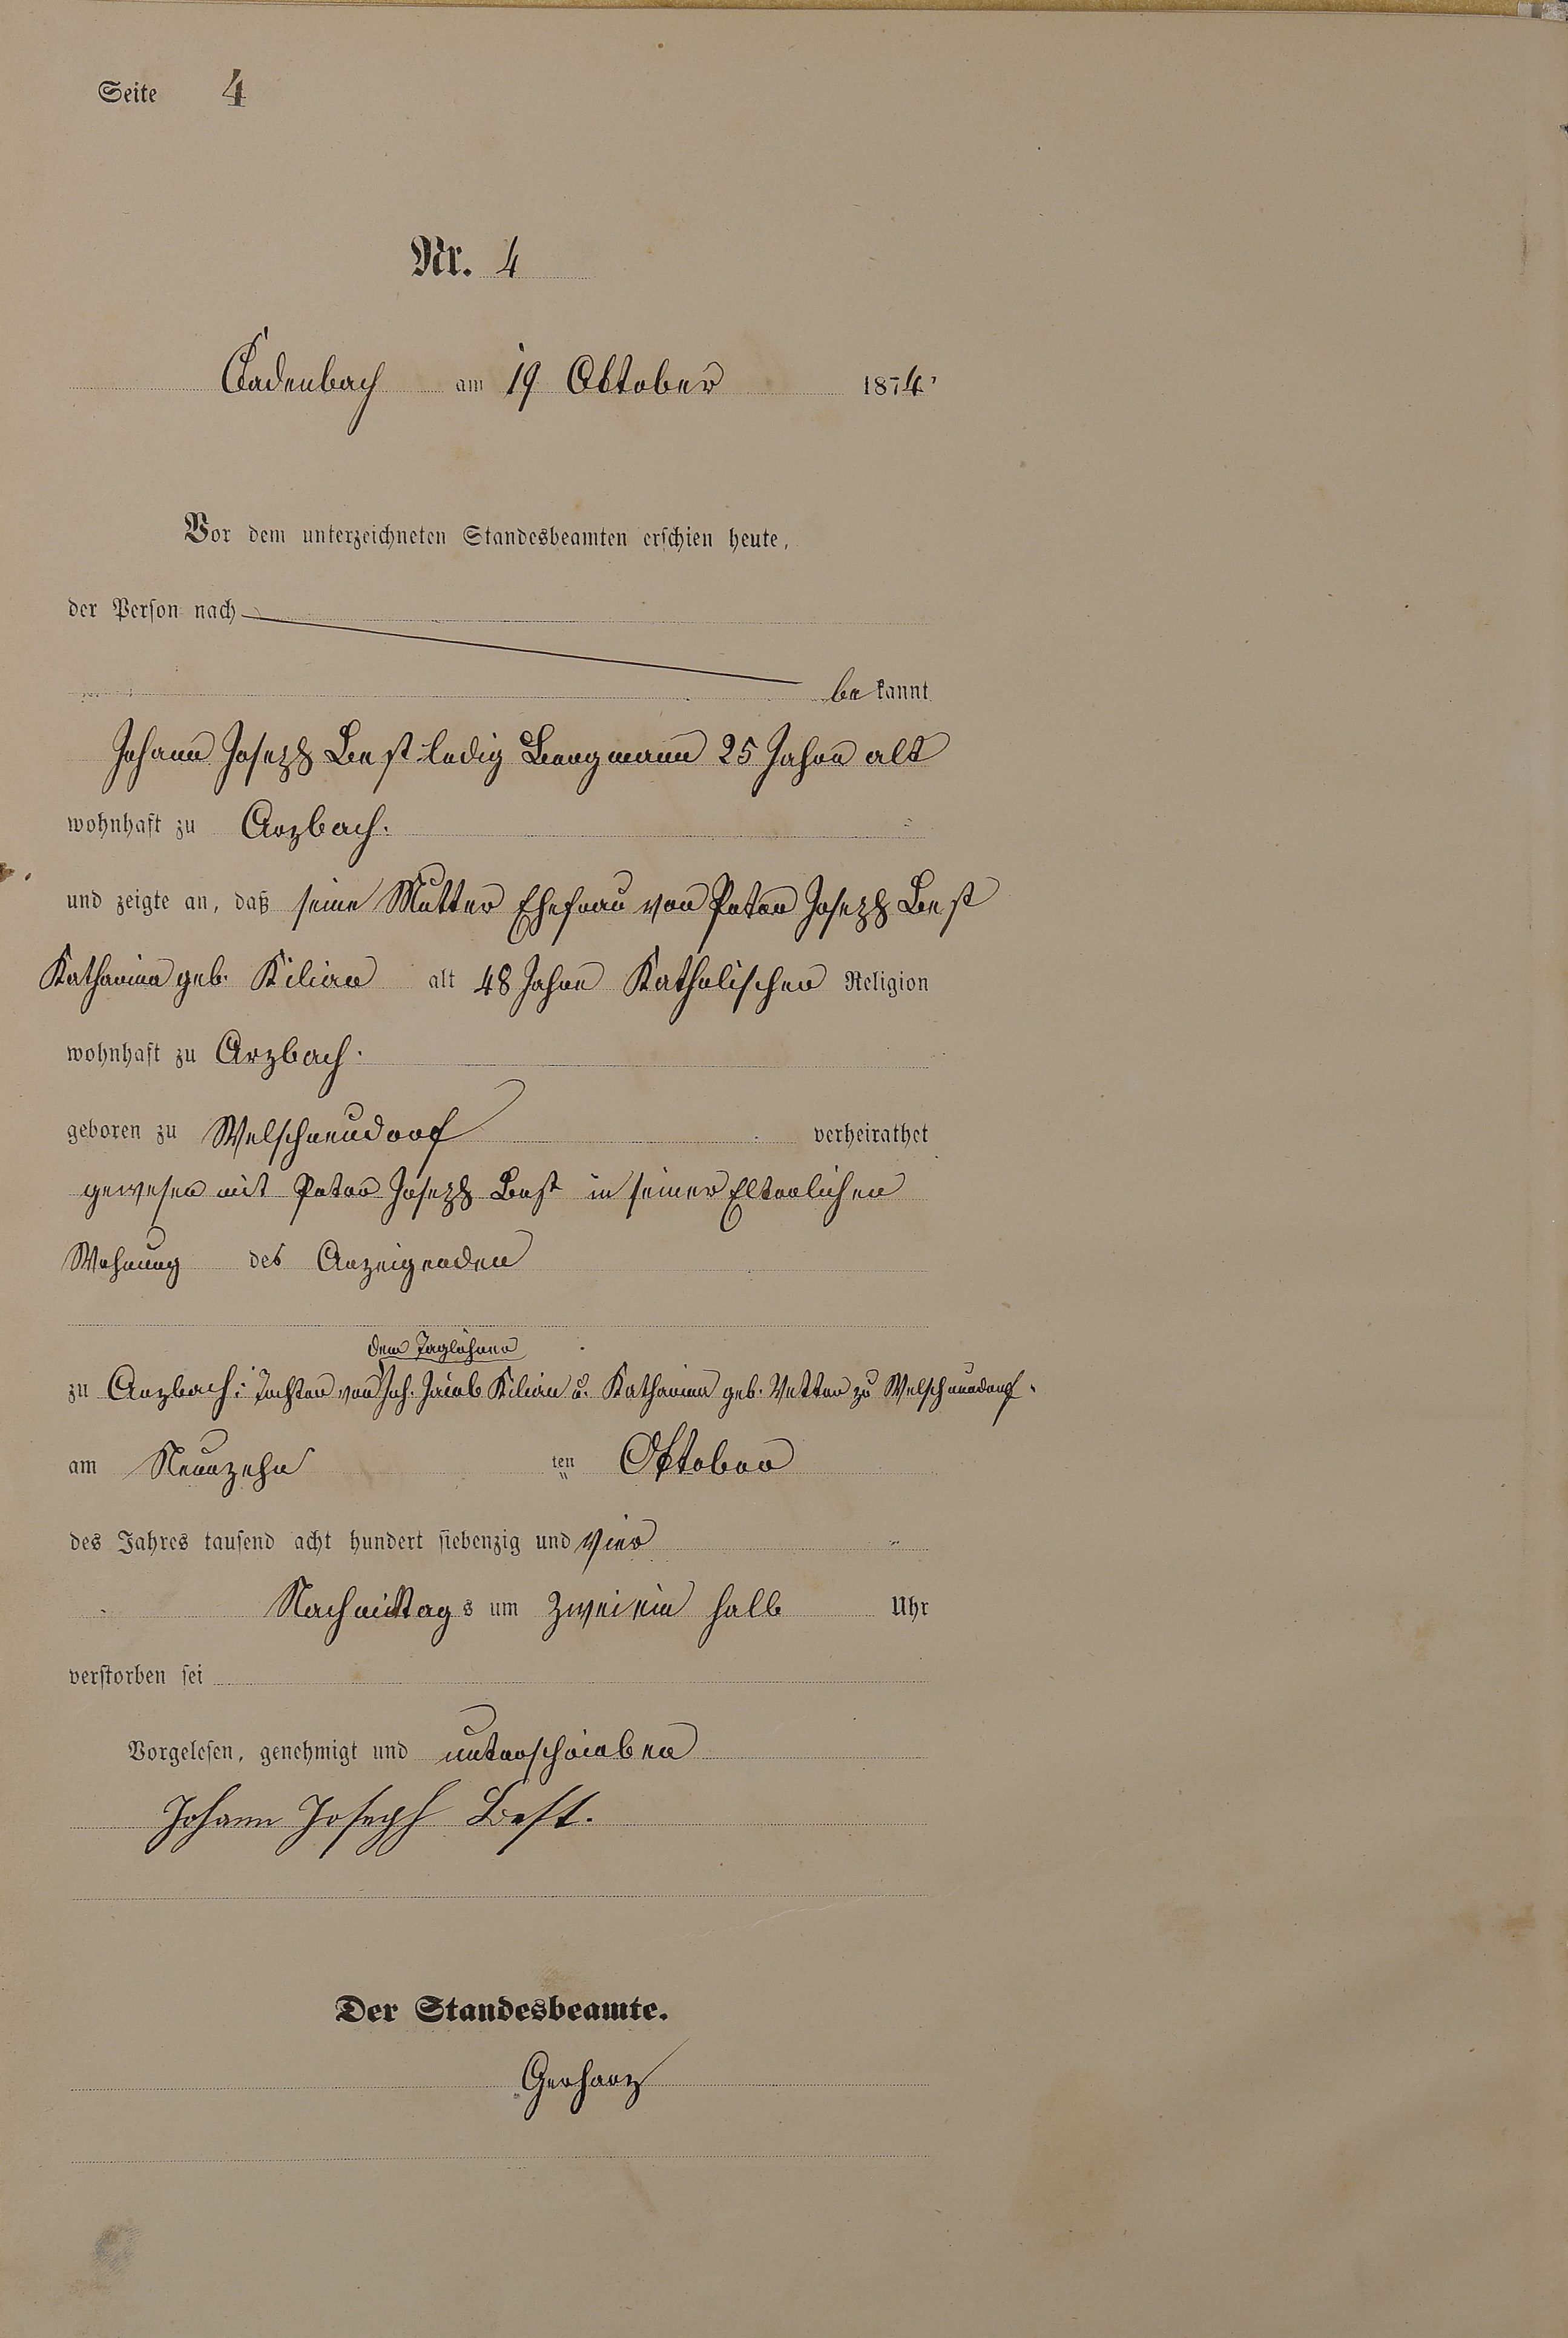 Seite 4
Nr. 4
Cadenbach am 19 Oktober 1874
Vor dem unterzeichneten Standesbeamten erschien heute,
der Person nach
be kannt
Johann Joseph Best ledig Bergmann 25 Jahre alt
wohnhaft zu Arzbach.
und zeigte an, daß seine Mutter Ehefrau von Peter Joseph Best
Katharina geb. Kilian alt 48 Jahre Katholischer Religion
wohnhaft zu Arzbach.
geboren zu Welschneudorf verheirathet
gewesen mit Peter Joseph Best in seiner Elterlichen
Wohnung des Anzeigenden
dem Taglöhner
zu Arzbach: Tochter von Joh. Jacob Kilian u. Katharina geb. Vetter zu Welschneudorf.
am Neunzehn ten Oktober
des Jahres tausend acht hundert siebenzig und vier
Nachmittag s um zwei ein halb Uhr
verstorben sei
Vorgelesen, genehmigt und unterschrieben
Johann Joseph Best.
Der Standesbeamte.
Gerharz